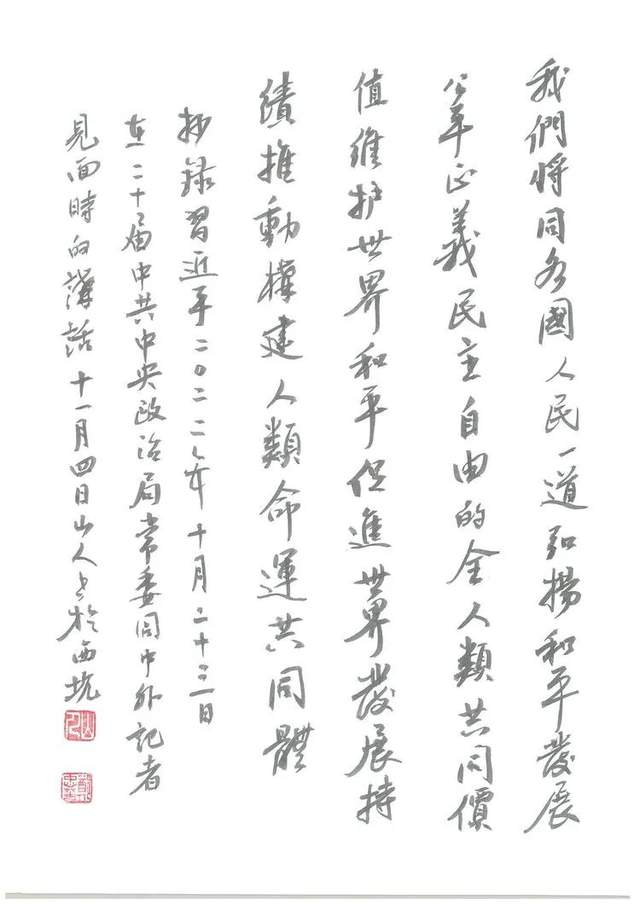 我們將同各國人民一道弘揚和平發展
公平正義民主自由的全人類共同價
值維护世界和平促進世界發展持
續推動構建人類命運共同體
抄錄習近平二〇二二年十月二十三日
在二十届中共中央政治局常委同中外記者
見面時的講話十一月四日山人书於西坑
山人